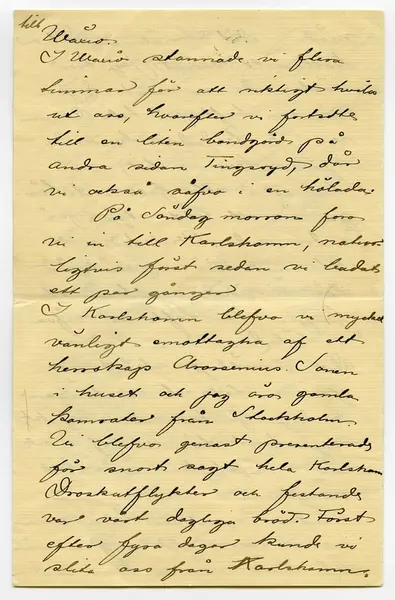 till
Wäxiö.
I Wexiö stannade vi flera
timmar för att riktigt hvila
ut oss, hvarefter vi fortsatte
till en liten bondgård på
andra sidan Tingsryd, där
vi också såfvo i en hölada.
På Söndag morron foro
vi in till Karlshamn, naturligtvis
först sedan vi badat
ett par gånger
I Karlshamn blefvo vi mycket
vänligt emottagna af ett
herrskap Sonen
i huset och jag äro gamla
kamrater från Stockholm.
Vi blefvo genast presenterade
för snart sagt hela Karlshamn
Droskutflykter och festande
var vårt dagliga bröd. Först
efter fyra dagar kunde vi
slita oss från Karlshamn.